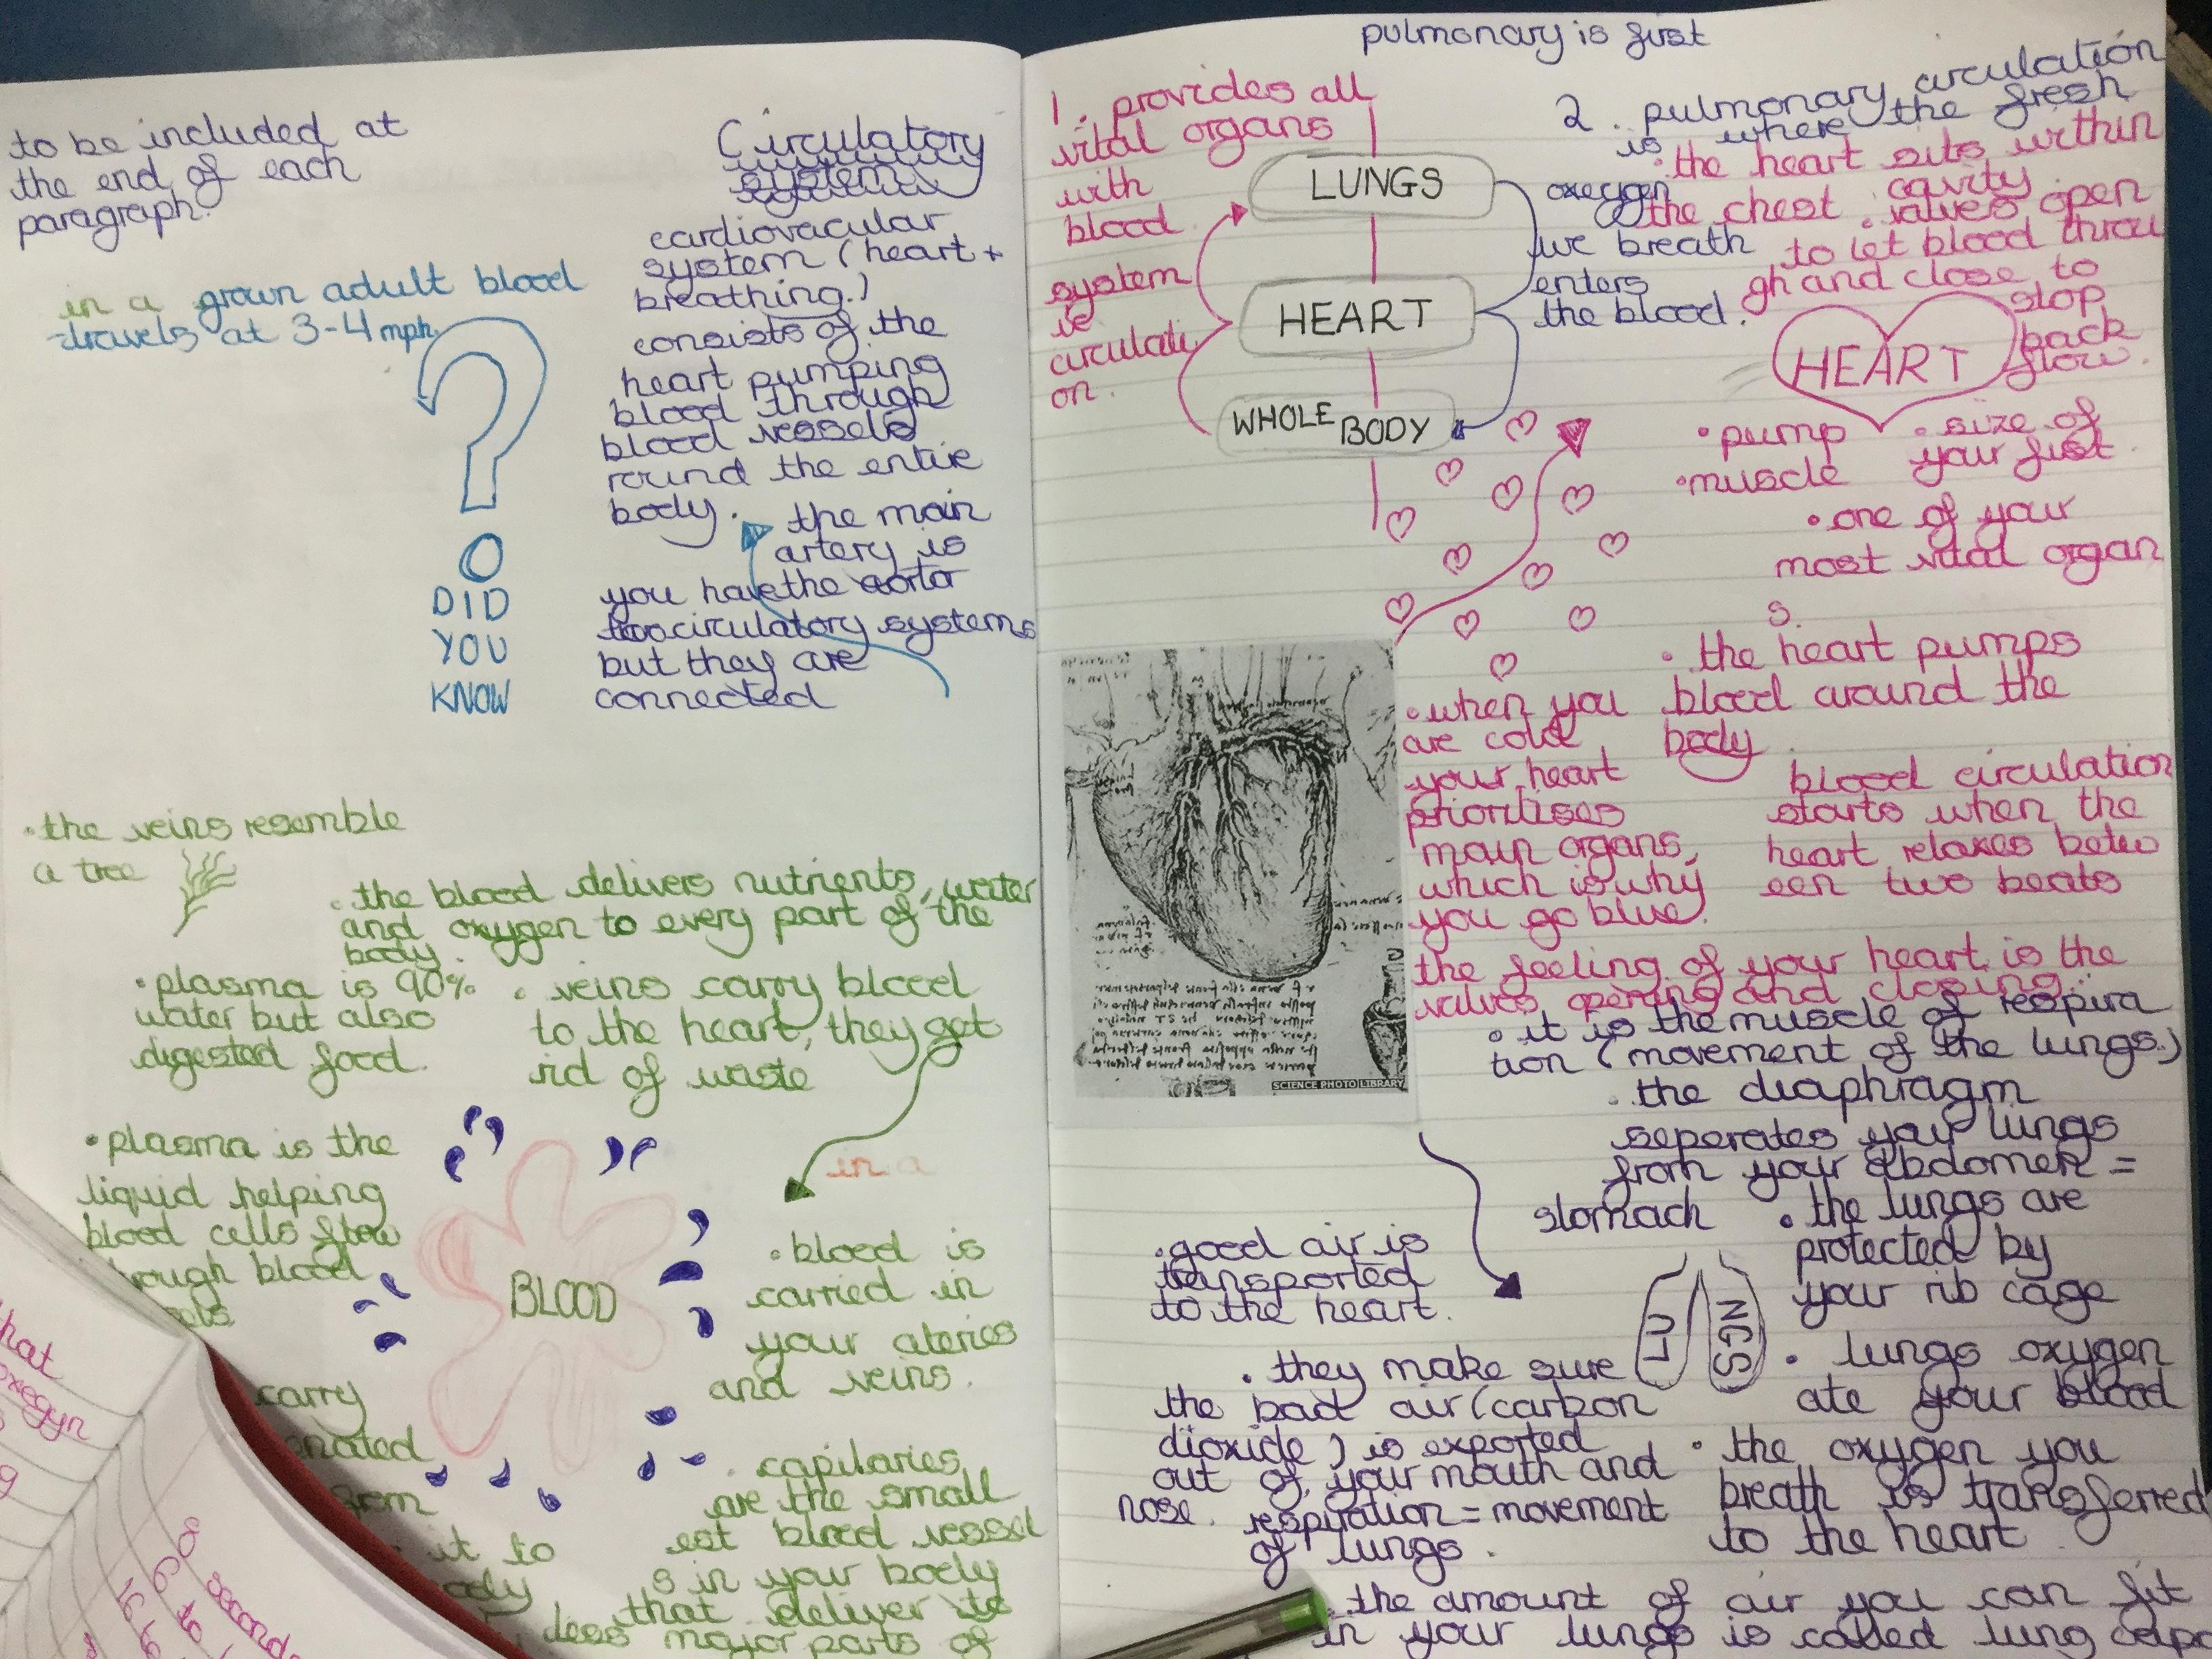 to be included at
the end of each
paragraph.
in a grown adult blood
travels at 3-4 mph.
DID
YOU
KNOW
Circulatory
system
cardiovacular
system (heart +
breathing.)
consists of the
heart pumping
blood through
blood vessels
round the entire
body.
the main
artery is
the aorta
you have
two circulatory systems
but they are
connected
• the veins resemble
a tree
• the blood delivers nutrients, water
and oxygen to every part of the
body.
• plasma is 90%
water but also
digested food.
• veins carry blood
to the heart, they get
rid of waste
• plasma is the
liquid helping
blood cells flow
blood
BLOOD
in a
• blood is
carried in
your ateries
and veins.
carry
from
it to
• capilaries
are the small
est blood vessel
s in your body
that deliver to
less major parts of
pulmonary is first
1. provides all
vital organs
with
blood.
system
is
circulati
on.
LUNGS
HEART
WHOLE BODY
2. pulmonary circulation
is where the fresh
oxeygen
we breath
enters
the blood.
• the heart sits within
the chest cavity.
• valves open
to let blood throu
gh and close to
stop
back
flow.
HEART
• pump
• muscle
• size of
your fist
• one of your
most vital organ
s.
• the heart pumps
blood around the
body.
• when you
are cold
your heart
prioritises
main organs,
which is why
you go blue.
blood circulation
starts when the
heart relaxes betw
een two beats
the feeling of your heart is the
valves opening and closing.
SCIENCE PHOTO LIBRARY
• it is the muscle of respira
tion (movement of the lungs.)
• the diaphragm
seperates your lungs
from your abdomen =
stomach
• the lungs are
protected by
your rib cage
LU
NGS
• good air is
transported
to the heart.
• they make sure
the bad air (carbon
dioxide) is exported
out of your mouth and
nose.
respiration = movement
of lungs.
• lungs oxygen
ate your blood
• the oxygen you
breath is transferred
to the heart.
• the amount of air you can fit
in your lungs is called lung
hat
oxegyn